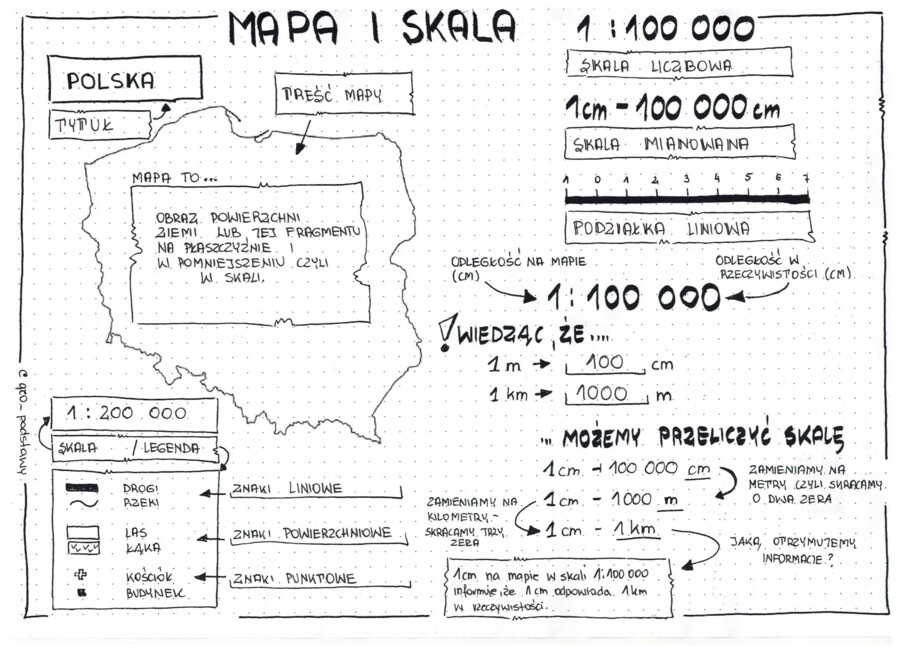 MAPA I SKALA
POLSKA
TYTUŁ
TREŚĆ MAPY
MAPA TO...
OBRAZ POWIERZCHNI
ZIEMI LUB JEJ FRAGMENTU
NA PŁASZCZYŹNIE I
W POMNIEJSZENIU CZYLI
W SKALI.
1 : 200 000
SKALA / LEGENDA
DROGI
RZEKI
ZNAKI LINIOWE
LAS
ŁĄKA
ZNAKI POWIERZCHNIOWE
KOŚCIÓŁ
BUDYNEK
ZNAKI PUNKTOWE
© geo-podstawy
1 : 100 000
SKALA LICZBOWA
1cm - 100 000 cm
SKALA MIANOWANA
1 0 1 2 3 4 5 6 7
PODZIAŁKA LINIOWA
ODLEGŁOŚĆ NA MAPIE
(CM)
ODLEGŁOŚĆ W
RZECZYWISTOŚCI (CM)
1 : 100 000
! WIEDZĄC, ŻE....
1 m → 100 cm
1 km → 1000 m
... MOŻEMY PRZELICZYĆ SKALĘ
1 cm - 100 000 cm
ZAMIENIAMY NA
METRY CZYLI SKRACAMY
O DWA ZERA
1 cm - 1000 m
ZAMIENIAMY NA
KILOMETRY -
SKRACAMY TRZY
ZERA
1 cm - 1 km
JAKĄ OTRZYMUJEMY
INFORMACJE?
1cm na mapie w skali 1:100 000
informuje, że 1 cm odpowiada 1km
w rzeczywistości.